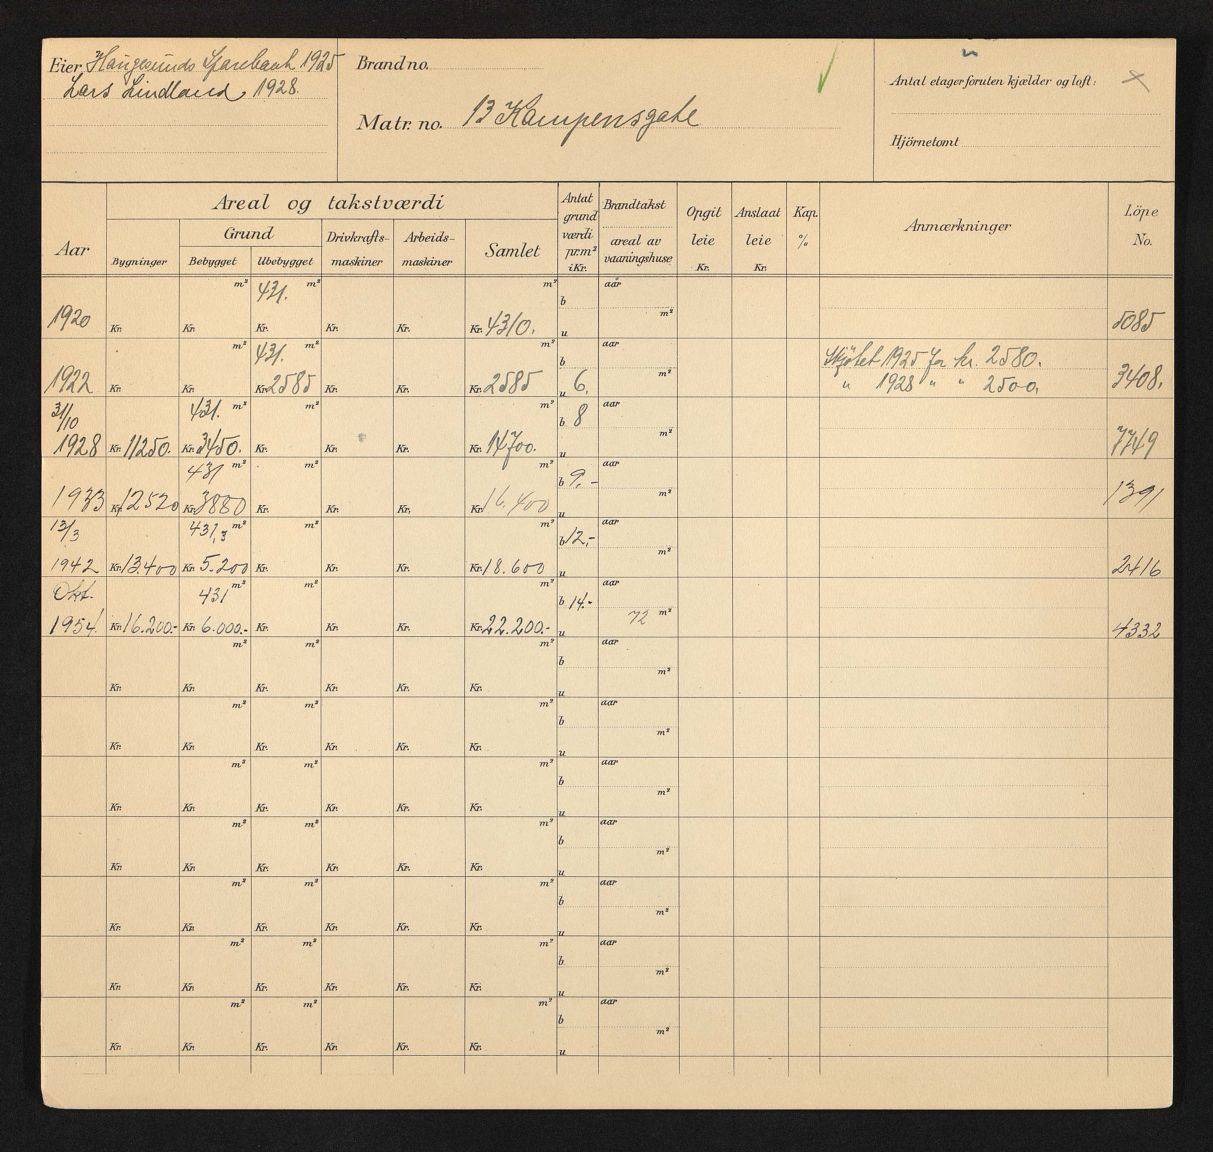 Eier Haugesunds Sparebank 1925
Lars Lindland 1928.
Brand no.
Matr. no. 13 Kampensgate
Antal etager foruten kjælder og loft:
Hjörnetomt
Aar
Areal og takstværdi
Grund
Bygninger
Bebygget
Ubebygget
Drivkrafts-
maskiner
Arbeids-
maskiner
Samlet
Antat
grund
værdi
pr. m²
i Kr.
Brandtakst
areal av
vaaningshuse
Opgit
leie
Kr.
Anslaat
leie
Kr.
Kap.
%
Anmærkninger
Löpe
No.
m² 431. m² m² b aar
1920 Kr. Kr. Kr. Kr. Kr. Kr. 4310. u m² 5085
m² 431. m² m² b aar Skjøtet 1925 for kr. 2580.
1922 Kr. Kr. Kr. 2585 Kr. Kr. Kr. 2585 u 6. m² " 1928 " " 2500. 3408.
31/10 431. m² m² m² b 8 aar
1928 Kr. 11250. Kr. 3450. Kr. Kr. Kr. Kr. 14700. u m² 7749
431 m² m² m² b 9,- aar
1933 Kr. 12520 Kr. 3880 Kr. Kr. Kr. Kr. 16.400 u m² 1391
13/3 431,3 m² m² m² b 12,- aar
1942 Kr. 13.400 Kr. 5.200 Kr. Kr. Kr. Kr. 18.600 u m² 2416
Okt. 431 m² m² m² b 14.- aar
1954. Kr. 16.200.- Kr. 6.000.- Kr. Kr. Kr. Kr. 22.200.- u 72 m² 4332
m² m² m² b aar
Kr. Kr. Kr. Kr. Kr. Kr. u m²
m² m² m² b aar
Kr. Kr. Kr. Kr. Kr. Kr. u m²
m² m² m² b aar
Kr. Kr. Kr. Kr. Kr. Kr. u m²
m² m² m² b aar
Kr. Kr. Kr. Kr. Kr. Kr. u m²
m² m² m² b aar
Kr. Kr. Kr. Kr. Kr. Kr. u m²
m² m² m² b aar
Kr. Kr. Kr. Kr. Kr. Kr. u m²
m² m² m² b aar
Kr. Kr. Kr. Kr. Kr. Kr. u m²